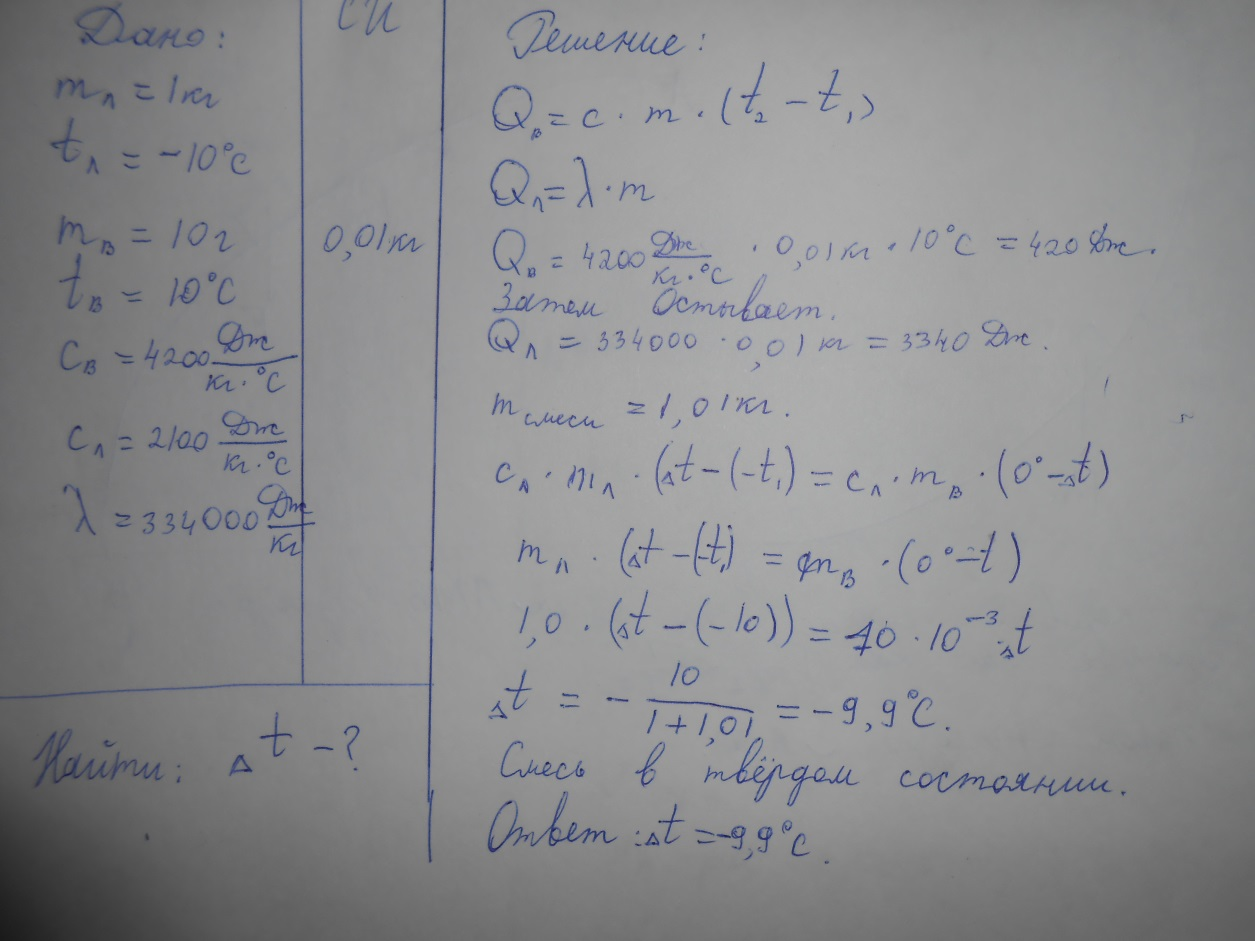 Дано:
m_л = 1кг
t_л = -10°С
m_в = 10г
t_в = 10°С
С_в = 4200 Дж/кг·°С
С_л = 2100 Дж/кг·°С
λ = 334000 Дж/кг
Найти: Δt - ?
СИ
0,01кг
Решение:
Q_в = с · m · (t₂ - t₁)
Q_л = λ · m
Q_в = 4200 Дж/кг·°С · 0,01кг · 10°С = 420 Дж.
Затем Остывает.
Q_л = 334000 · 0,01кг = 3340 Дж.
m_смеси = 1,01кг.
с_л · m_л · (Δt - (-t₁) = с_л · m_в · (0° - Δt)
m_л · (Δt - (-t₁) = m_в · (0° - t)
1,0 · (Δt - (-10)) = 10 · 10⁻³ · Δt
Δt = - 10/1+1,01 = -9,9°С.
Смесь в твёрдом состоянии.
Ответ: Δt = -9,9°С.